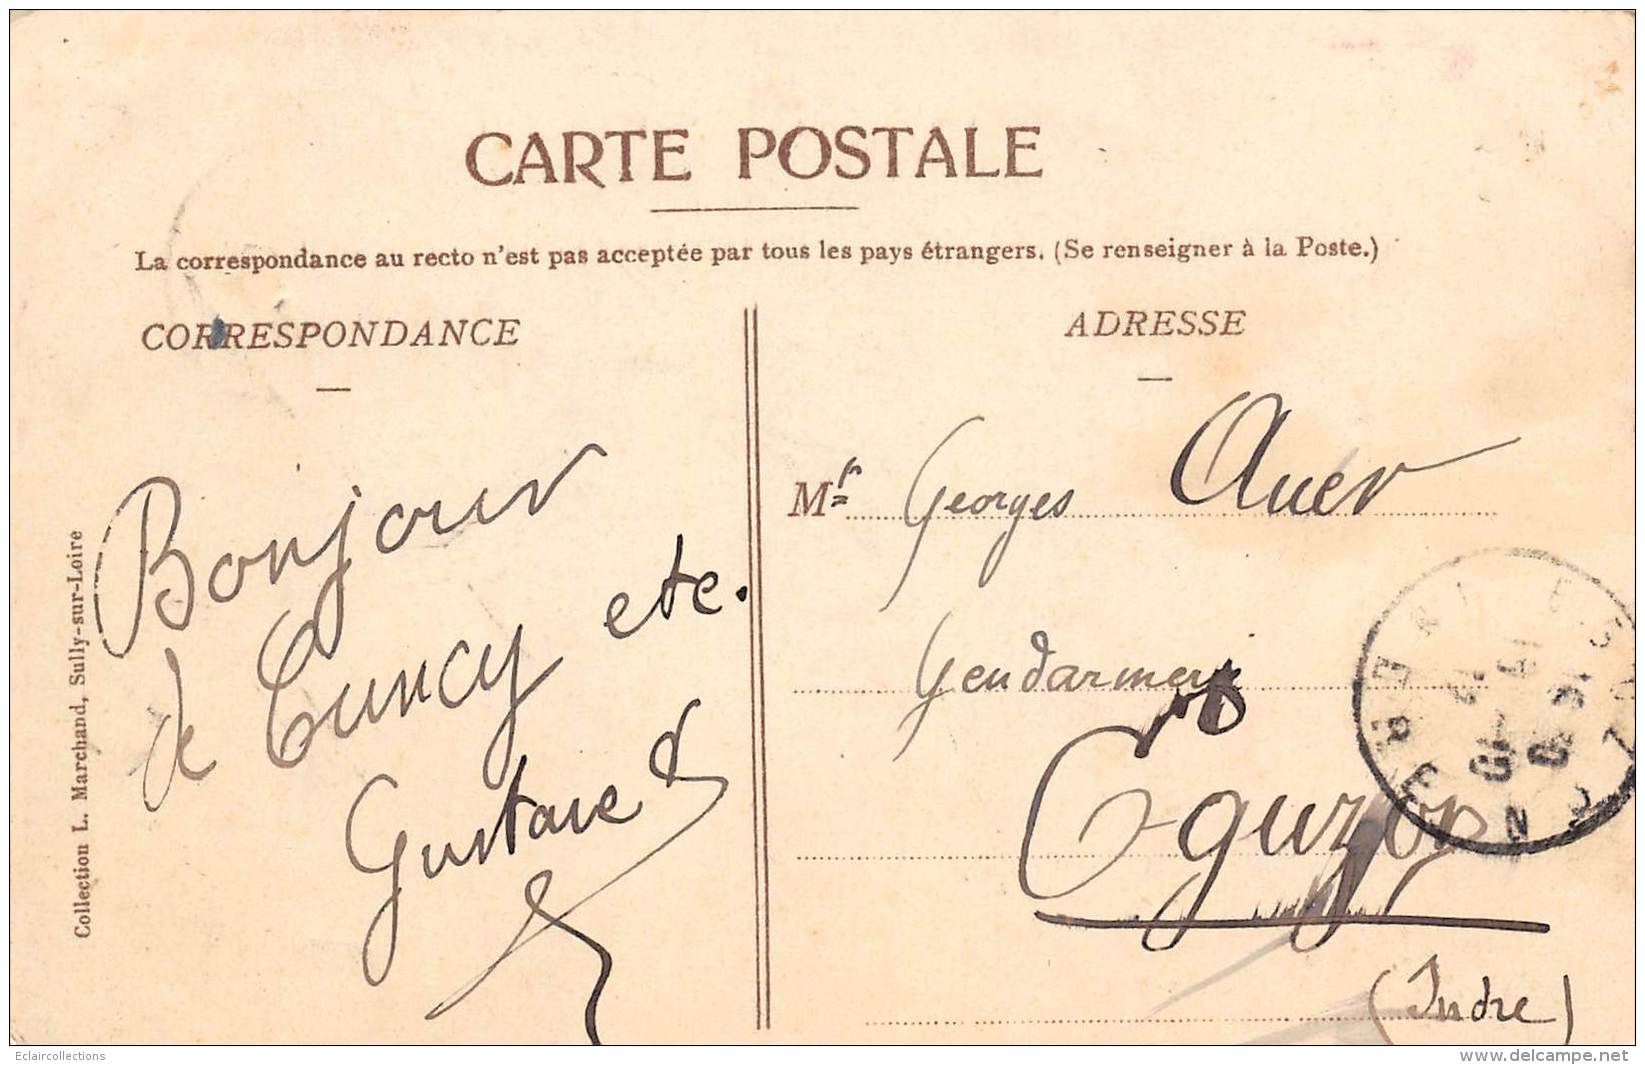 CARTE POSTALE
La correspondance au recto n'est pas acceptée par tous les pays étrangers. (Se renseigner à la Poste.)
CORRESPONDANCE
Bonjour
de Cuncy etc.
Gustave
Collection L. Marchand, Sully-sur-Loire
ADRESSE
Mr Georges Auer
Gendarmerie
Eguzon
(Indre)
Eclaircollections
www.delcampe.net